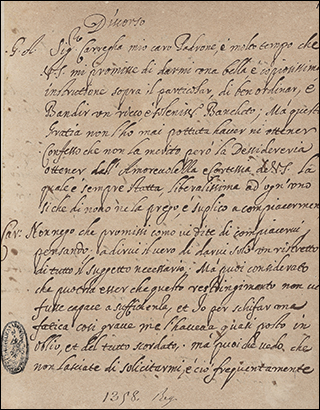 Discorso
G. A. Sig.re Farreglia mio caro Padrone, è molto tempo che
V.S. mi promesse di darmi una bella è copiosissima
instruttione sopra il particolar, di ben ordinar, è
Bandir un ricco è solenniss.o Banchetto; Ma questa
Gratia non l'ho mai potuta haver ne ottener
Confesso che non la merito però la Dessidererìa
ottener dall'Amorevolezza è Cortesia di V.S. la
quale è sempre statta liberalissima ad ogni uno
si che di nono ne la prego, è suplico a compiacermene
Far: Non nego che promissi come dite di compiacervi
pensando, à dirvi il vero di darvi solo un ristretto
di tutto il suggetto necessario; Ma poi considerato
che potria esser che questo restringimento non vi
fusse capace a sufficienza, et Io per schifar una
fatica cosi grave me l'haveva quasi posto in
oblio, et del tutto scordato. ma poi che vedo, che
non lasciate di solicitarmi, è ciò frequentamente
1358. Reg.